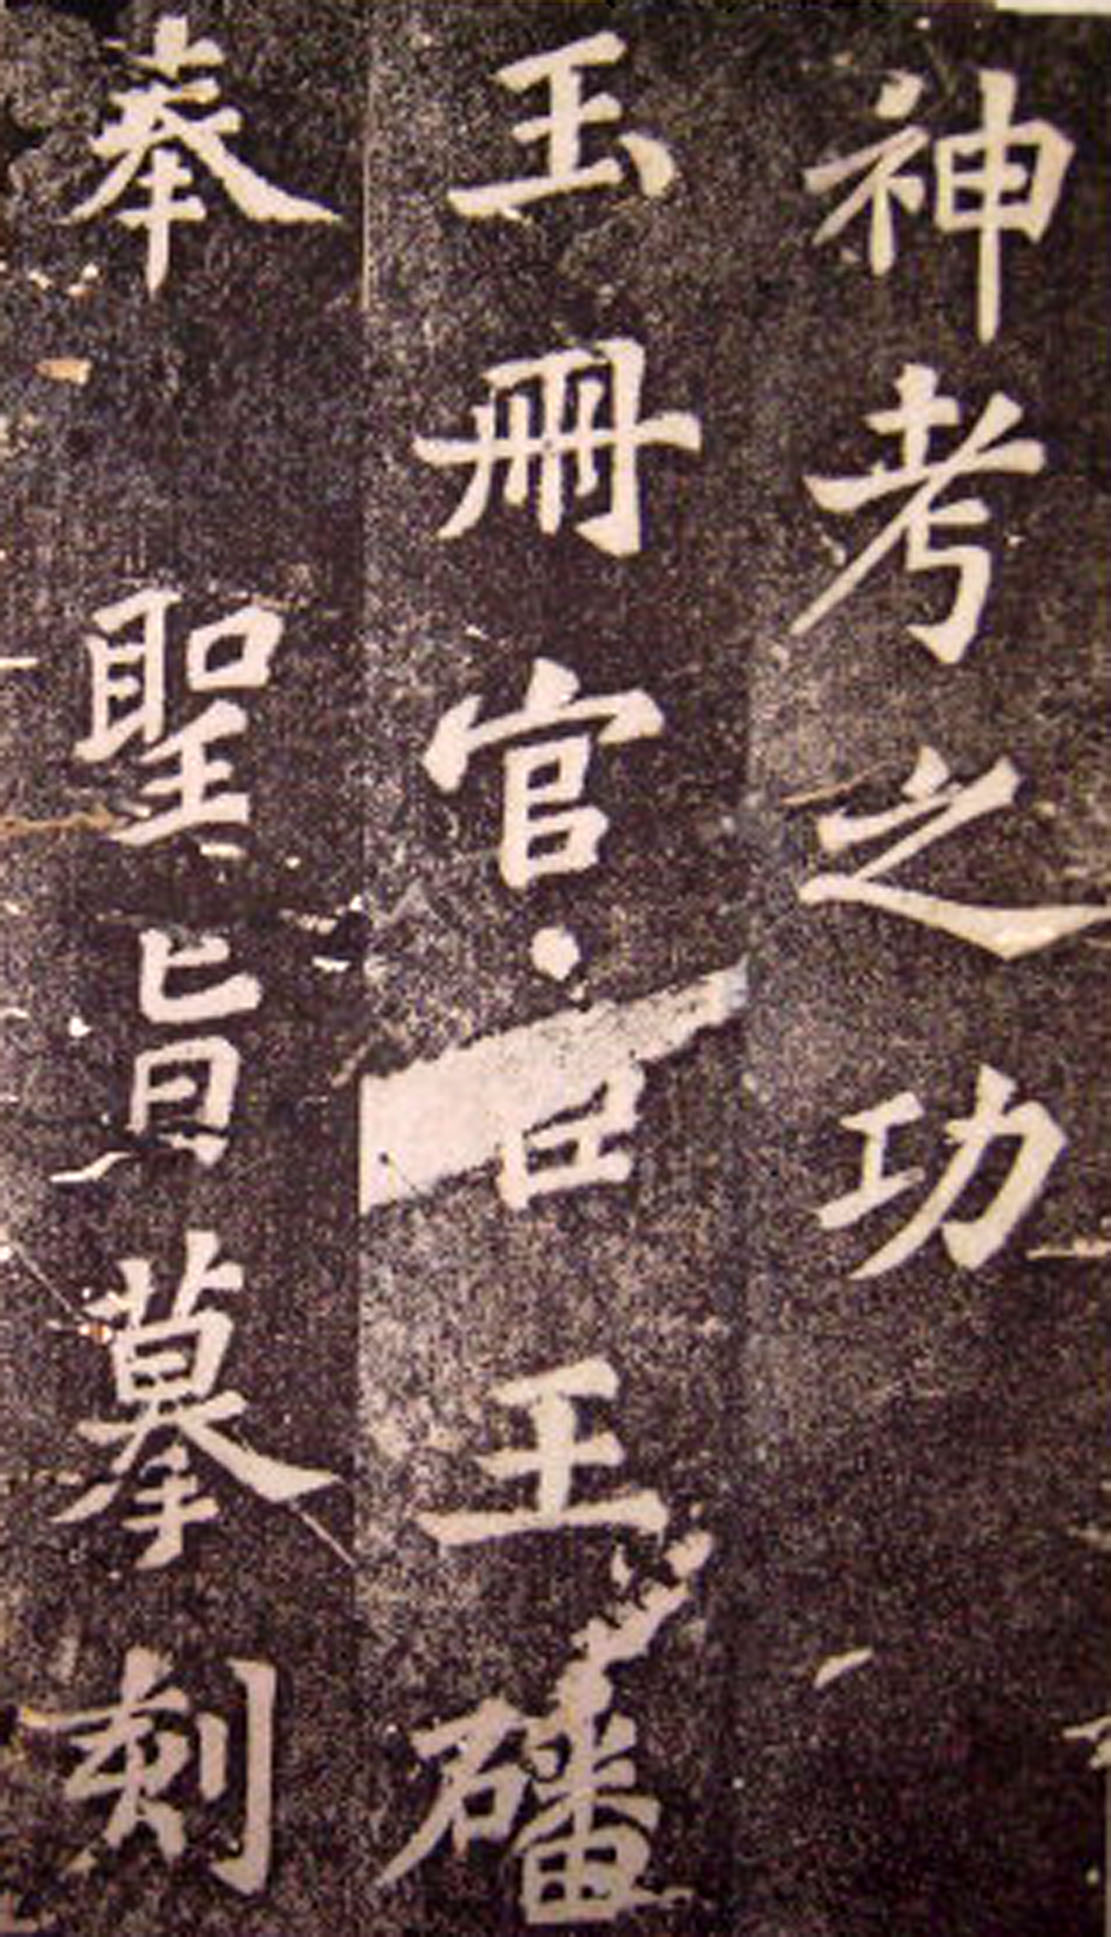 神考之功
玉冊官臣王磻
奉 聖旨摹刻